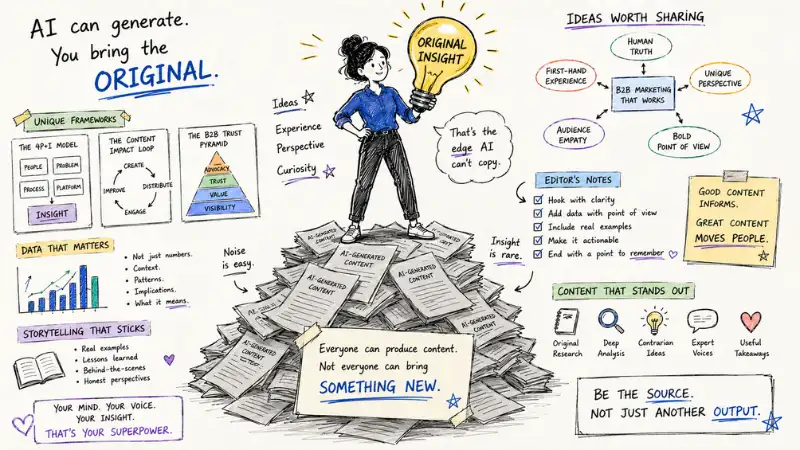 AI can generate.
You bring the
ORIGINAL.
UNIQUE FRAMEWORKS
THE 4P+I MODEL
PEOPLE
PROBLEM
PROCESS
PLATFORM
INSIGHT
THE CONTENT
IMPACT LOOP
CREATE
DISTRIBUTE
ENGAGE
IMPROVE
THE B2B TRUST
PYRAMID
ADVOCACY
TRUST
VALUE
VISIBILITY
DATA THAT MATTERS
• Not just numbers.
• Context.
• Patterns.
• Implications.
• What it means.
STORYTELLING THAT STICKS
• Real examples
• Lessons learned
• Behind-the-scenes
• Honest perspectives
YOUR MIND. YOUR VOICE.
YOUR INSIGHT.
THAT'S YOUR SUPERPOWER.
ORIGINAL
INSIGHT
Ideas
Experience
Perspective
Curiosity
That's the
edge AI
can't copy.
Noise
is easy.
Insight
is rare.
AI-GENERATED
CONTENT
AI-GENERATED
CONTENT
AI-GENERATED
CONTENT
AI-GENERATED
CONTENT
AI-GENERATED
CONTENT
AI-GENERATED
Everyone can produce content.
Not everyone can bring
SOMETHING NEW.
IDEAS WORTH SHARING
HUMAN
TRUTH
FIRST-HAND
EXPERIENCE
UNIQUE
PERSPECTIVE
B2B MARKETING
THAT WORKS
AUDIENCE
EMPATY
BOLD
POINT OF VIEW
EDITOR'S NOTES
Hook with clarity
Add data with point of view
Include real examples
Make it actionable
End with a point to remember
GOOD CONTENT
INFORMS.
GREAT CONTENT
MOVES PEOPLE.
CONTENT THAT STANDS OUT
Original
Research
Deep
Analysis
Contrarian
Ideas
Expert
Voices
Useful
Takeaways
BE THE SOURCE.
NOT JUST ANOTHER OUTPUT.